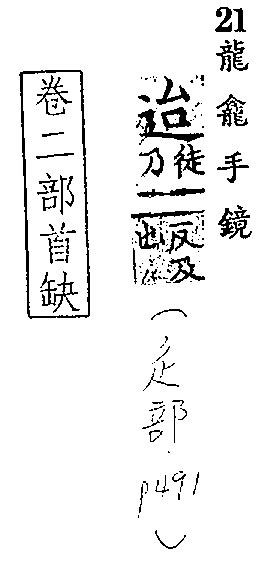 21龍龕手鏡
迨徒乃反及也
(辵部 p491)
卷二部首缺